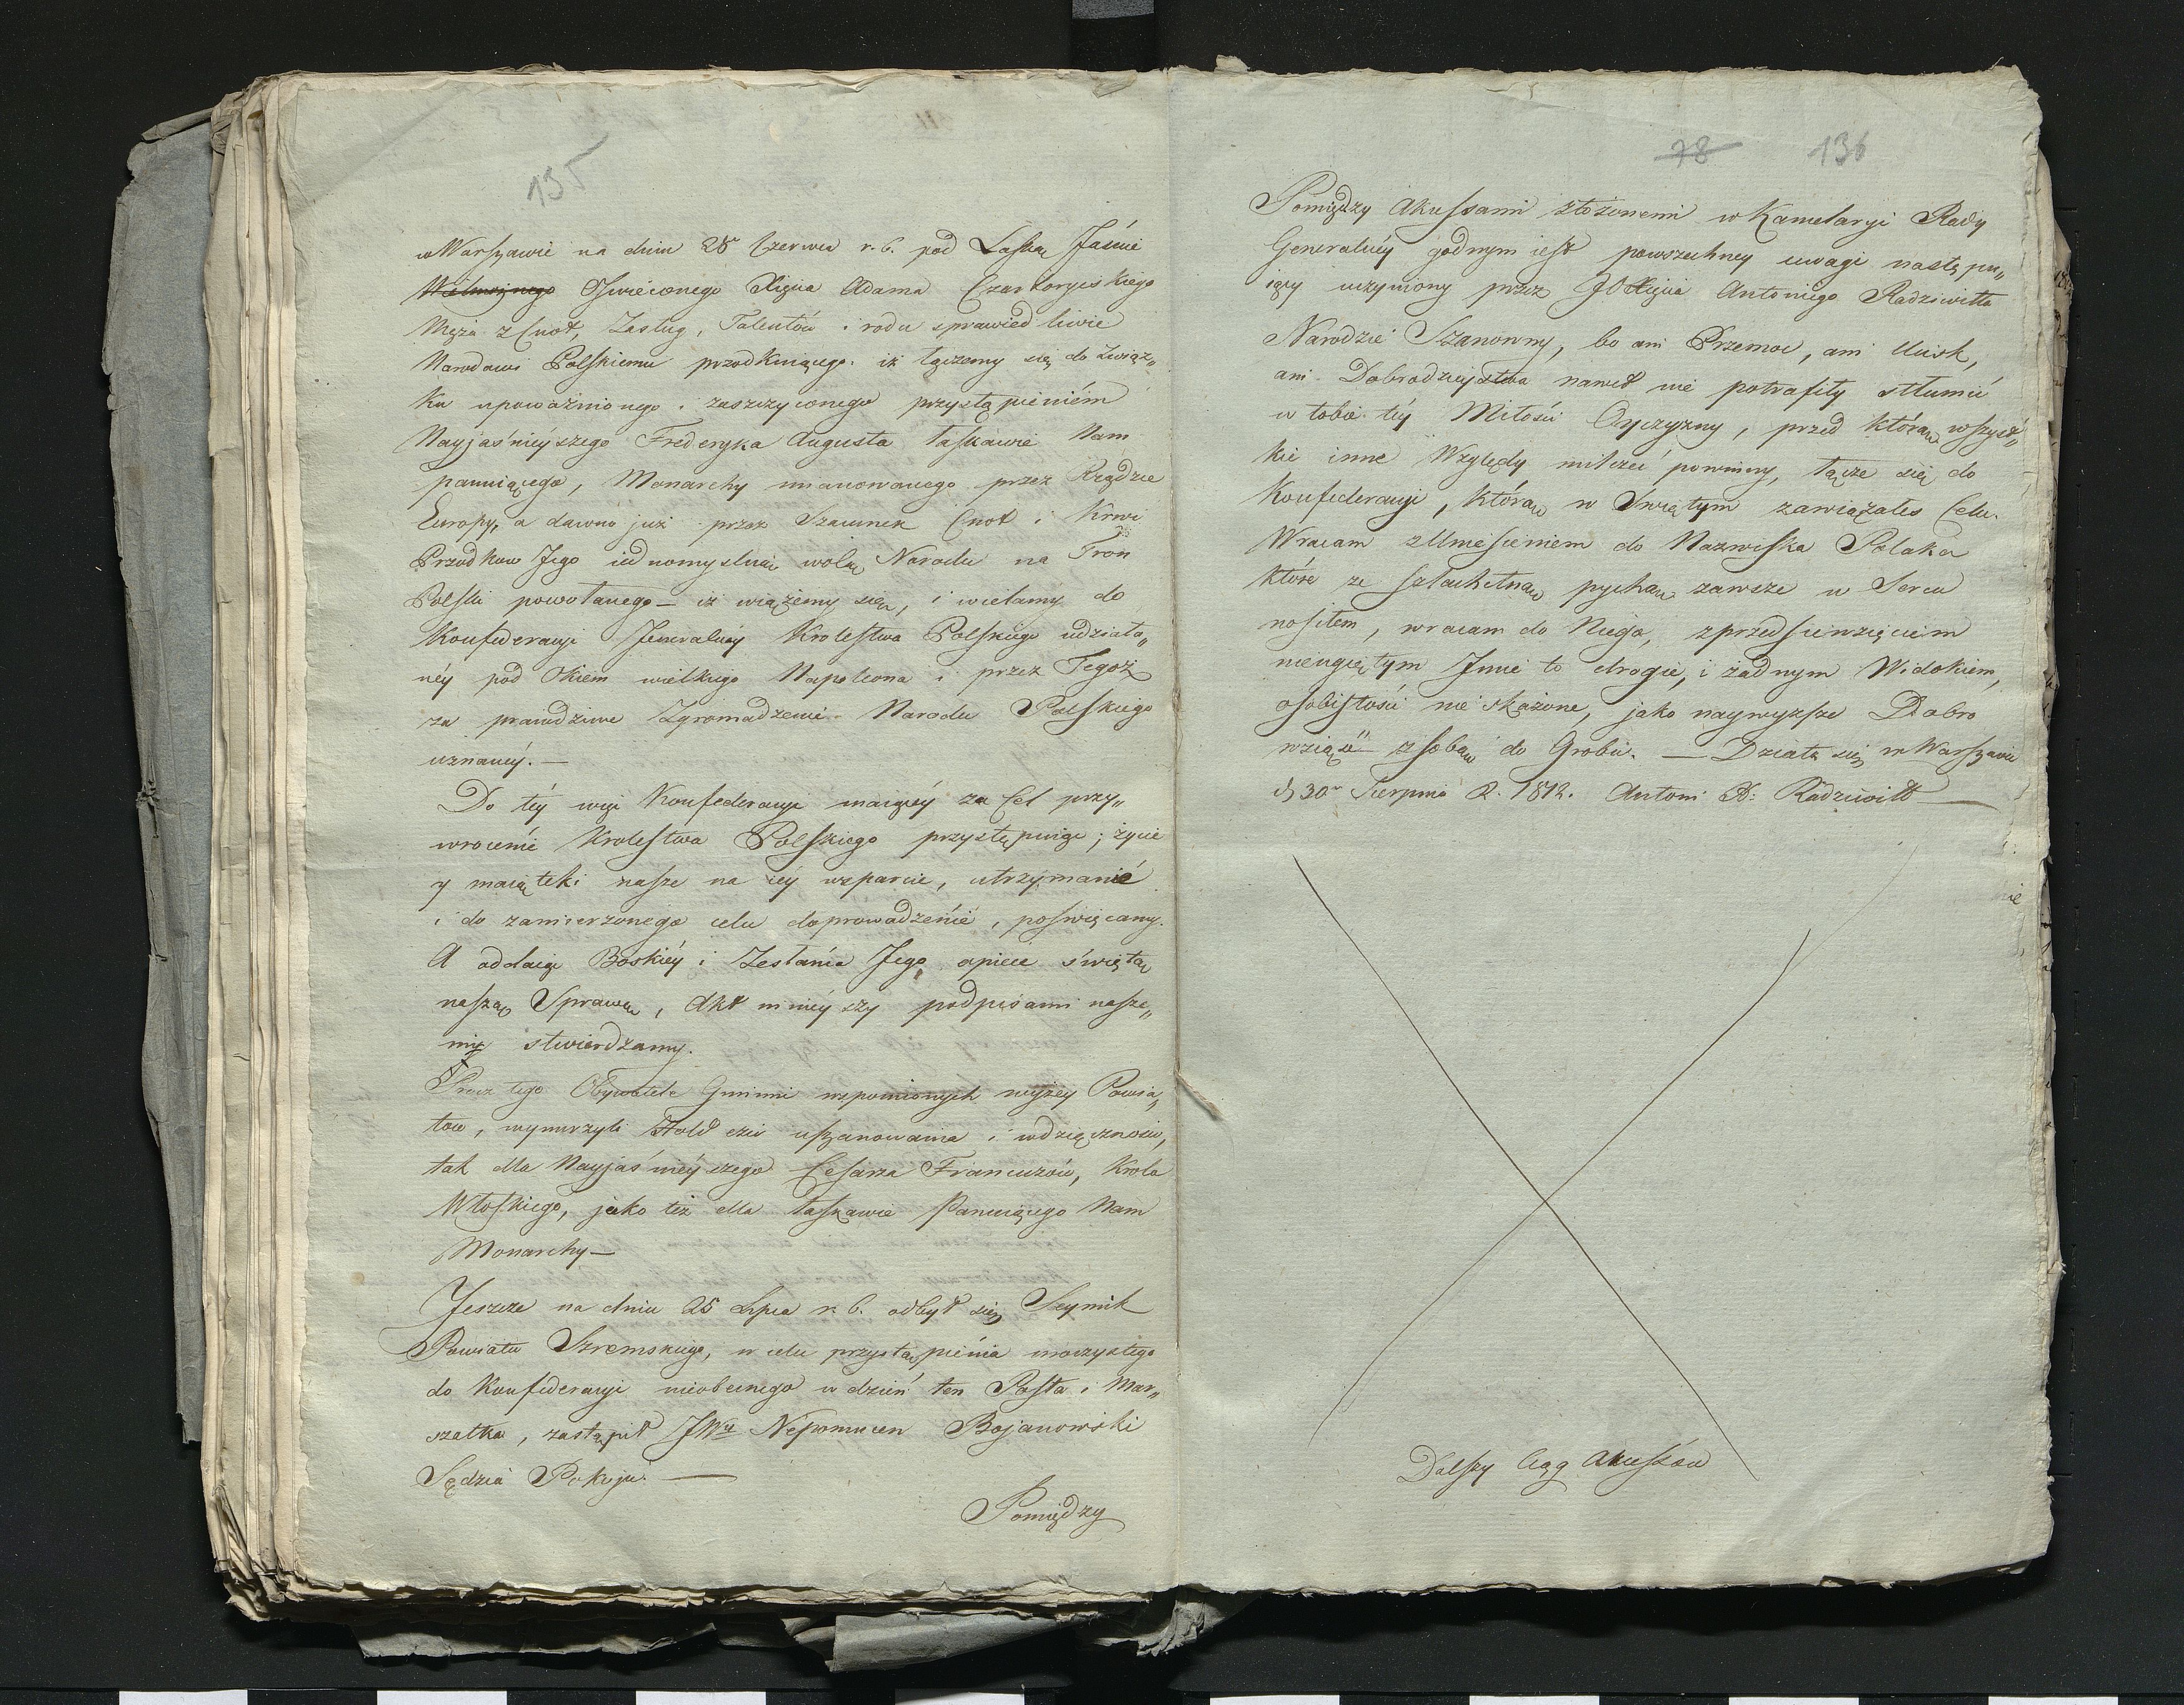 135
w Warszawie na dniu 28 Czerwca r. b. pod Laską Jaśnie
Wielmożnego Oświeconego Xięcia Adama Czartoryiskiego
Męża z Cnot, Zasług, Talentów i rodu sprawiedliwie
Narodowi Polskiemu przodkuiącego. iż łączemy się do Związ„
ku upoważnionego i zaszczyconego przystąpieniém
Nayjaśnieyszego Frederyka Augusta łaskawie Nam
panuiącego, Monarchy mianowanego przez Rządzce
Europy, a dawno już przez Szacunek Cnot i Krwi
Przodkow Jego iednomyslnie wolą Narodu na Tron
Polski powołanego — iż wiążemy się, i wielamy do
Konfederacyi Jeneralney Krolestwa Polskiego udziała„
néy pod Okiem wielkiego Napoleona i przez Tegoż
za prawdziwe Zgromadzenie Narodu Polskiego
uznanéy. —
Do téy więc Konfederacyi maiącéy za Cel przy„
wrocenie Krolestwa Polskiego przystępuiąc; życie
y maiątki nasze na iéy wsparcie, utrzymanie
i do zamierzonego celu doprowadzenie, poswięcamy.
A oddaiąc Boskiéy i Zesłania Jego opiece świętą
naszą Sprawę, Akt ninieyszy podpisami nasze„
my stwierdzamy.
Procz tego Obywatele Gminni wspomionych wyżey Powia„
tow, wynurzyli Hołd czci uszanowania i wdzięcznosci,
tak dla Nayjaśniéyszego Cesarza Francuzów, Krola
Włoskiego, jako też dla łaskawie Panuiącego Nam
Monarchy —
Jeszcze na dniu 25 Lipca r. b. odbył się Seymik
Powiatu Szremskiego, w celu przystąpienia uroczystego
do Konfederacyi nieobecnego w dzień ten Posła i Mar„
szałka, zastąpił JWy Nepomucen Bojanowski
Sędzia Pokoju. —
Pomiędzy
78 136
Pomiędzy Akcessami złożonemi w Kancelaryi Rady
Generalnéy godnym iest powszechney uwagi następu„
iący uczyniony przez JO Xięcia Antoniego Radziwiłła
Narodzie Szanowny, bo ani Przemoc, ani Ucisk,
ani Dobrodzieystwa nawet nie potrafiły stłumić
w tobie téy Miłości Oyczyzny, przed którą wszyst„
kie inne Względy milczeć powinny, łącze się do
Konfederacyi, którą w Swiętym zawiązałes Celu.
Wracam z Uniesieniem do Nazwiska Polaka
które ze szlachetną pychą zawsze w Sercu
nosiłem, wracam do Niego, z przedsiewzięciem
nieugiętym Imie to drogie, i żadnym Widokiem,
osobistości nie skażone, jako naywyższe Dobro
wziąść z sobą do Grobu. — Działo się w Warszawie
d 30o Sierpnia R. 1812. Antoni X: Radziwiłł —
Dalszy Ciąg Akcessów